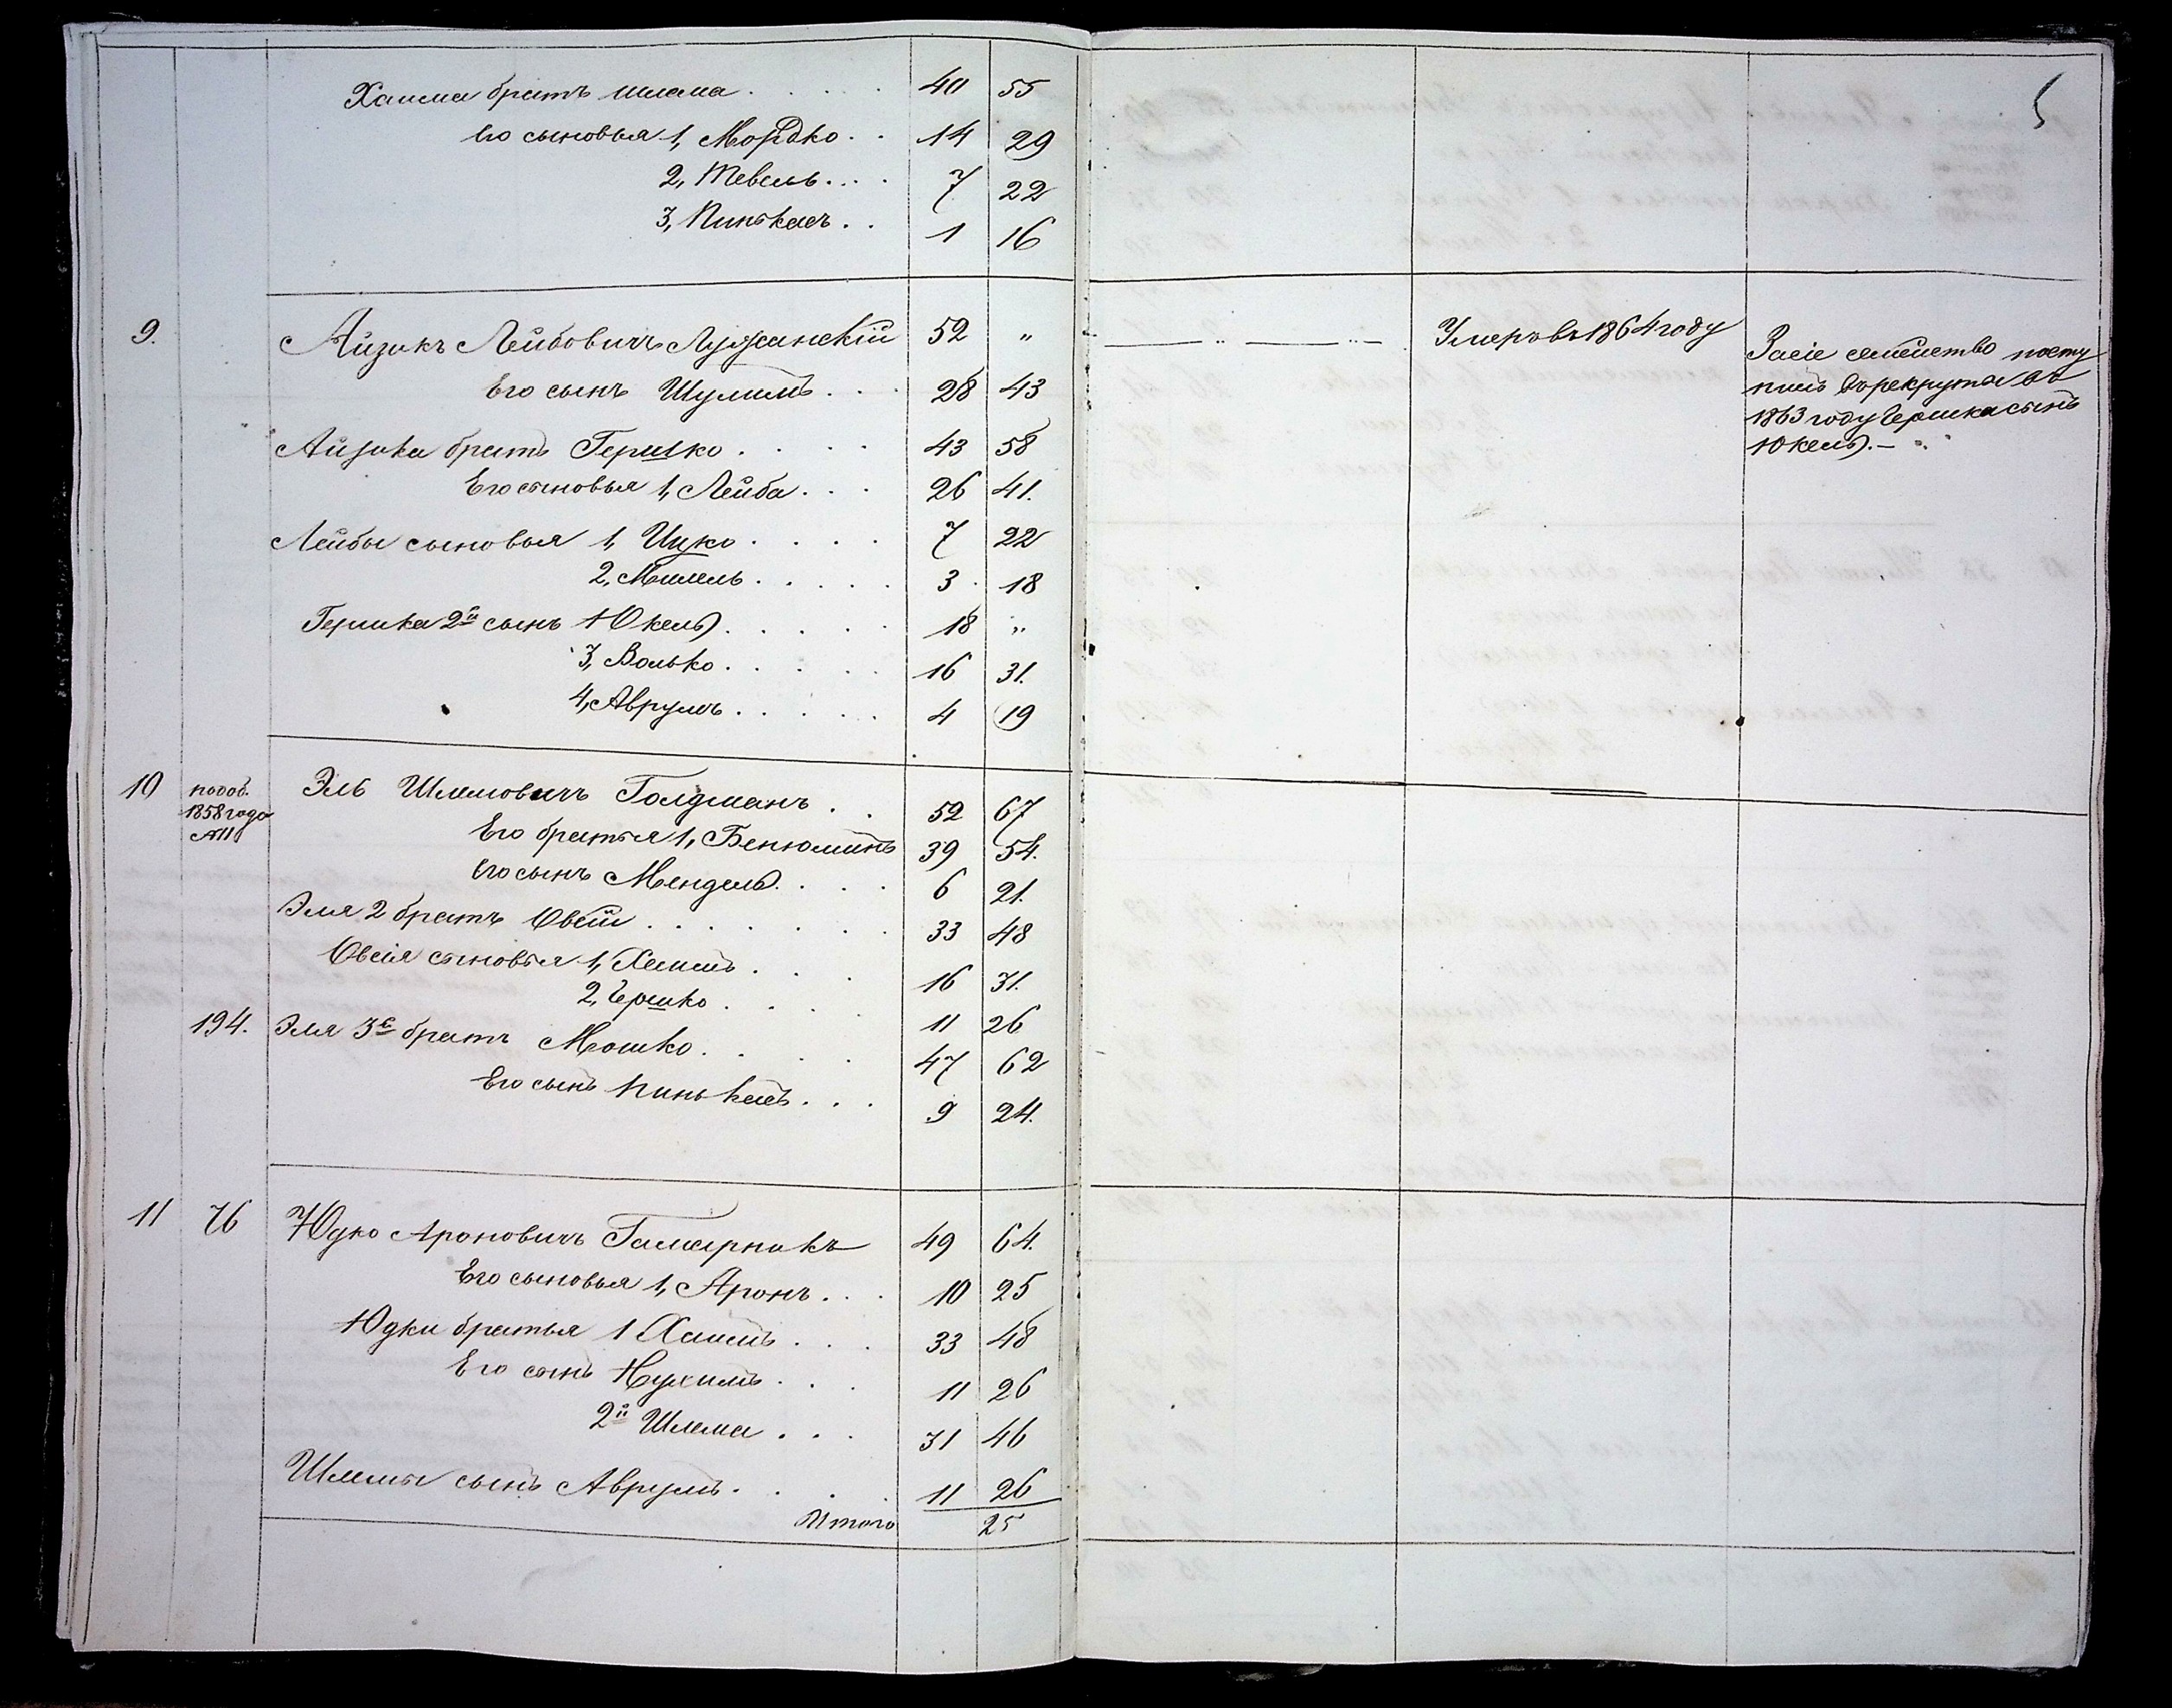 5
Хаима братъ Шлема . . . . . 40 55
Его сыновья 1, Мордко . . 14 29
2, Тевель . . . 7 22
3, Пинькасъ . . 1 16
9. Айзикъ Лейбовичъ Лужанскій 52 „ Умеръ въ 1864 году
Его сынъ Шулимъ . . . 28 43
Айзика братъ Гершко . . . . 43 58
Его сыновья 1, Лейба . . . 26 41.
Лейбы сыновья 1, Ицко . . . . 7 22
2, Мошель . . . . . 3 18
Гершка 2й сынъ Юкель . . . . . 18 „
3, Волько . . . . . 16 31.
4, Аврумъ . . . . . 4 19
За сіе семейство посту
пилъ въ рекруты въ
1863 году Гершка сынъ
Юкель. —
10 по доб. 1858 года №11 Эль Шлемовичъ Голдманъ . . 52 67
Его братья 1, Бенюминъ 39 54.
Его сынъ Мендель . . . 6 21.
Эля 2 братъ Овсій . . . . . . . 33 48
Овсія сыновья 1, Хаимъ . . . 16 31.
2, Гершко . . . . 11 26
194. Эля 3й братъ Мошко . . . . 47 62
Его сынъ Пинькасъ . . . 9 24.
11 76 Юдко Ароновичъ Гамарникъ 49 64.
Его сыновья 1, Аронъ . . . 10 25
Юдки братья 1 Хаимъ . . . 33 48
Его сынъ Нухимъ . . . 11 26
2й Шлема . . . 31 46
Шлемы сынъ Аврумъ . . . 11 26
Итого 25